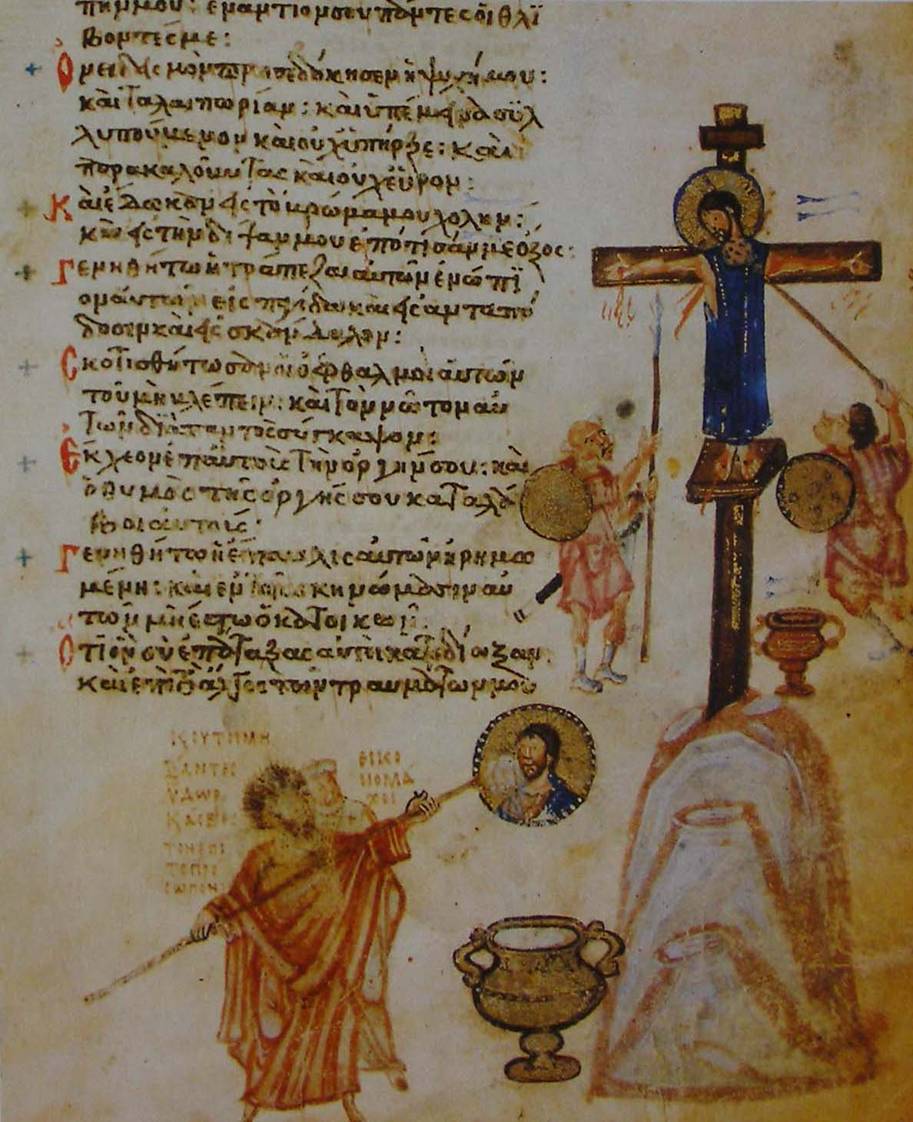 πήν μου: ἐναντίον σου πάντες οἱ θλί
βοντές με:
Ὀνειδισμὸν προσεδόκησεν ἡ ψυχή μου:
καὶ ταλαιπωρίαν: καὶ ὑπέμεινα συλ
λυπούμενον καὶ οὐχ ὑπῆρξε: καὶ
παρακαλοῦντας καὶ οὐχ εὗρον:
Καὶ ἔδωκαν εἰς τὸ βρῶμα μου χολήν:
καὶ εἰς τὴν δίψαν μου ἐπότισάν με ὄξος:
Γενηθήτω ἡ τράπεζα αὐτῶν ἐνώπι
ον αὐτῶν εἰς παγίδα καὶ εἰς ἀνταπό
δοσιν καὶ εἰς σκάνδαλον:
Σκοτισθήτωσαν οἱ ὀφθαλμοὶ αὐτῶν
τοῦ μὴ βλέπειν: καὶ τὸν νῶτον αὐ
τῶν διὰ παντὸς σύγκαμψον:
Ἔκχεον ἐπ αὐτοὺς τὴν ὀργήν σου: καὶ
ὁ θυμὸς τῆς ὀργῆς σου καταλά
βοι αὐτούς:
Γενηθήτω ἡ ἔπαυλις αὐτῶν ἠρημω
μένη: καὶ ἐν τοῖς σκηνώμασιν αὐ
τῶν μὴ ἔστω ὁ κατοικῶν:
Ὅτι ὃν σὺ ἐπάταξας αὐτοὶ κατεδίωξαν
καὶ ἐπὶ τὸ ἄλγος τῶν τραυμάτων μου
ΕΙΚΟ
ΝΟΜΑ
ΧΟΙ
ΥΔΩΡ